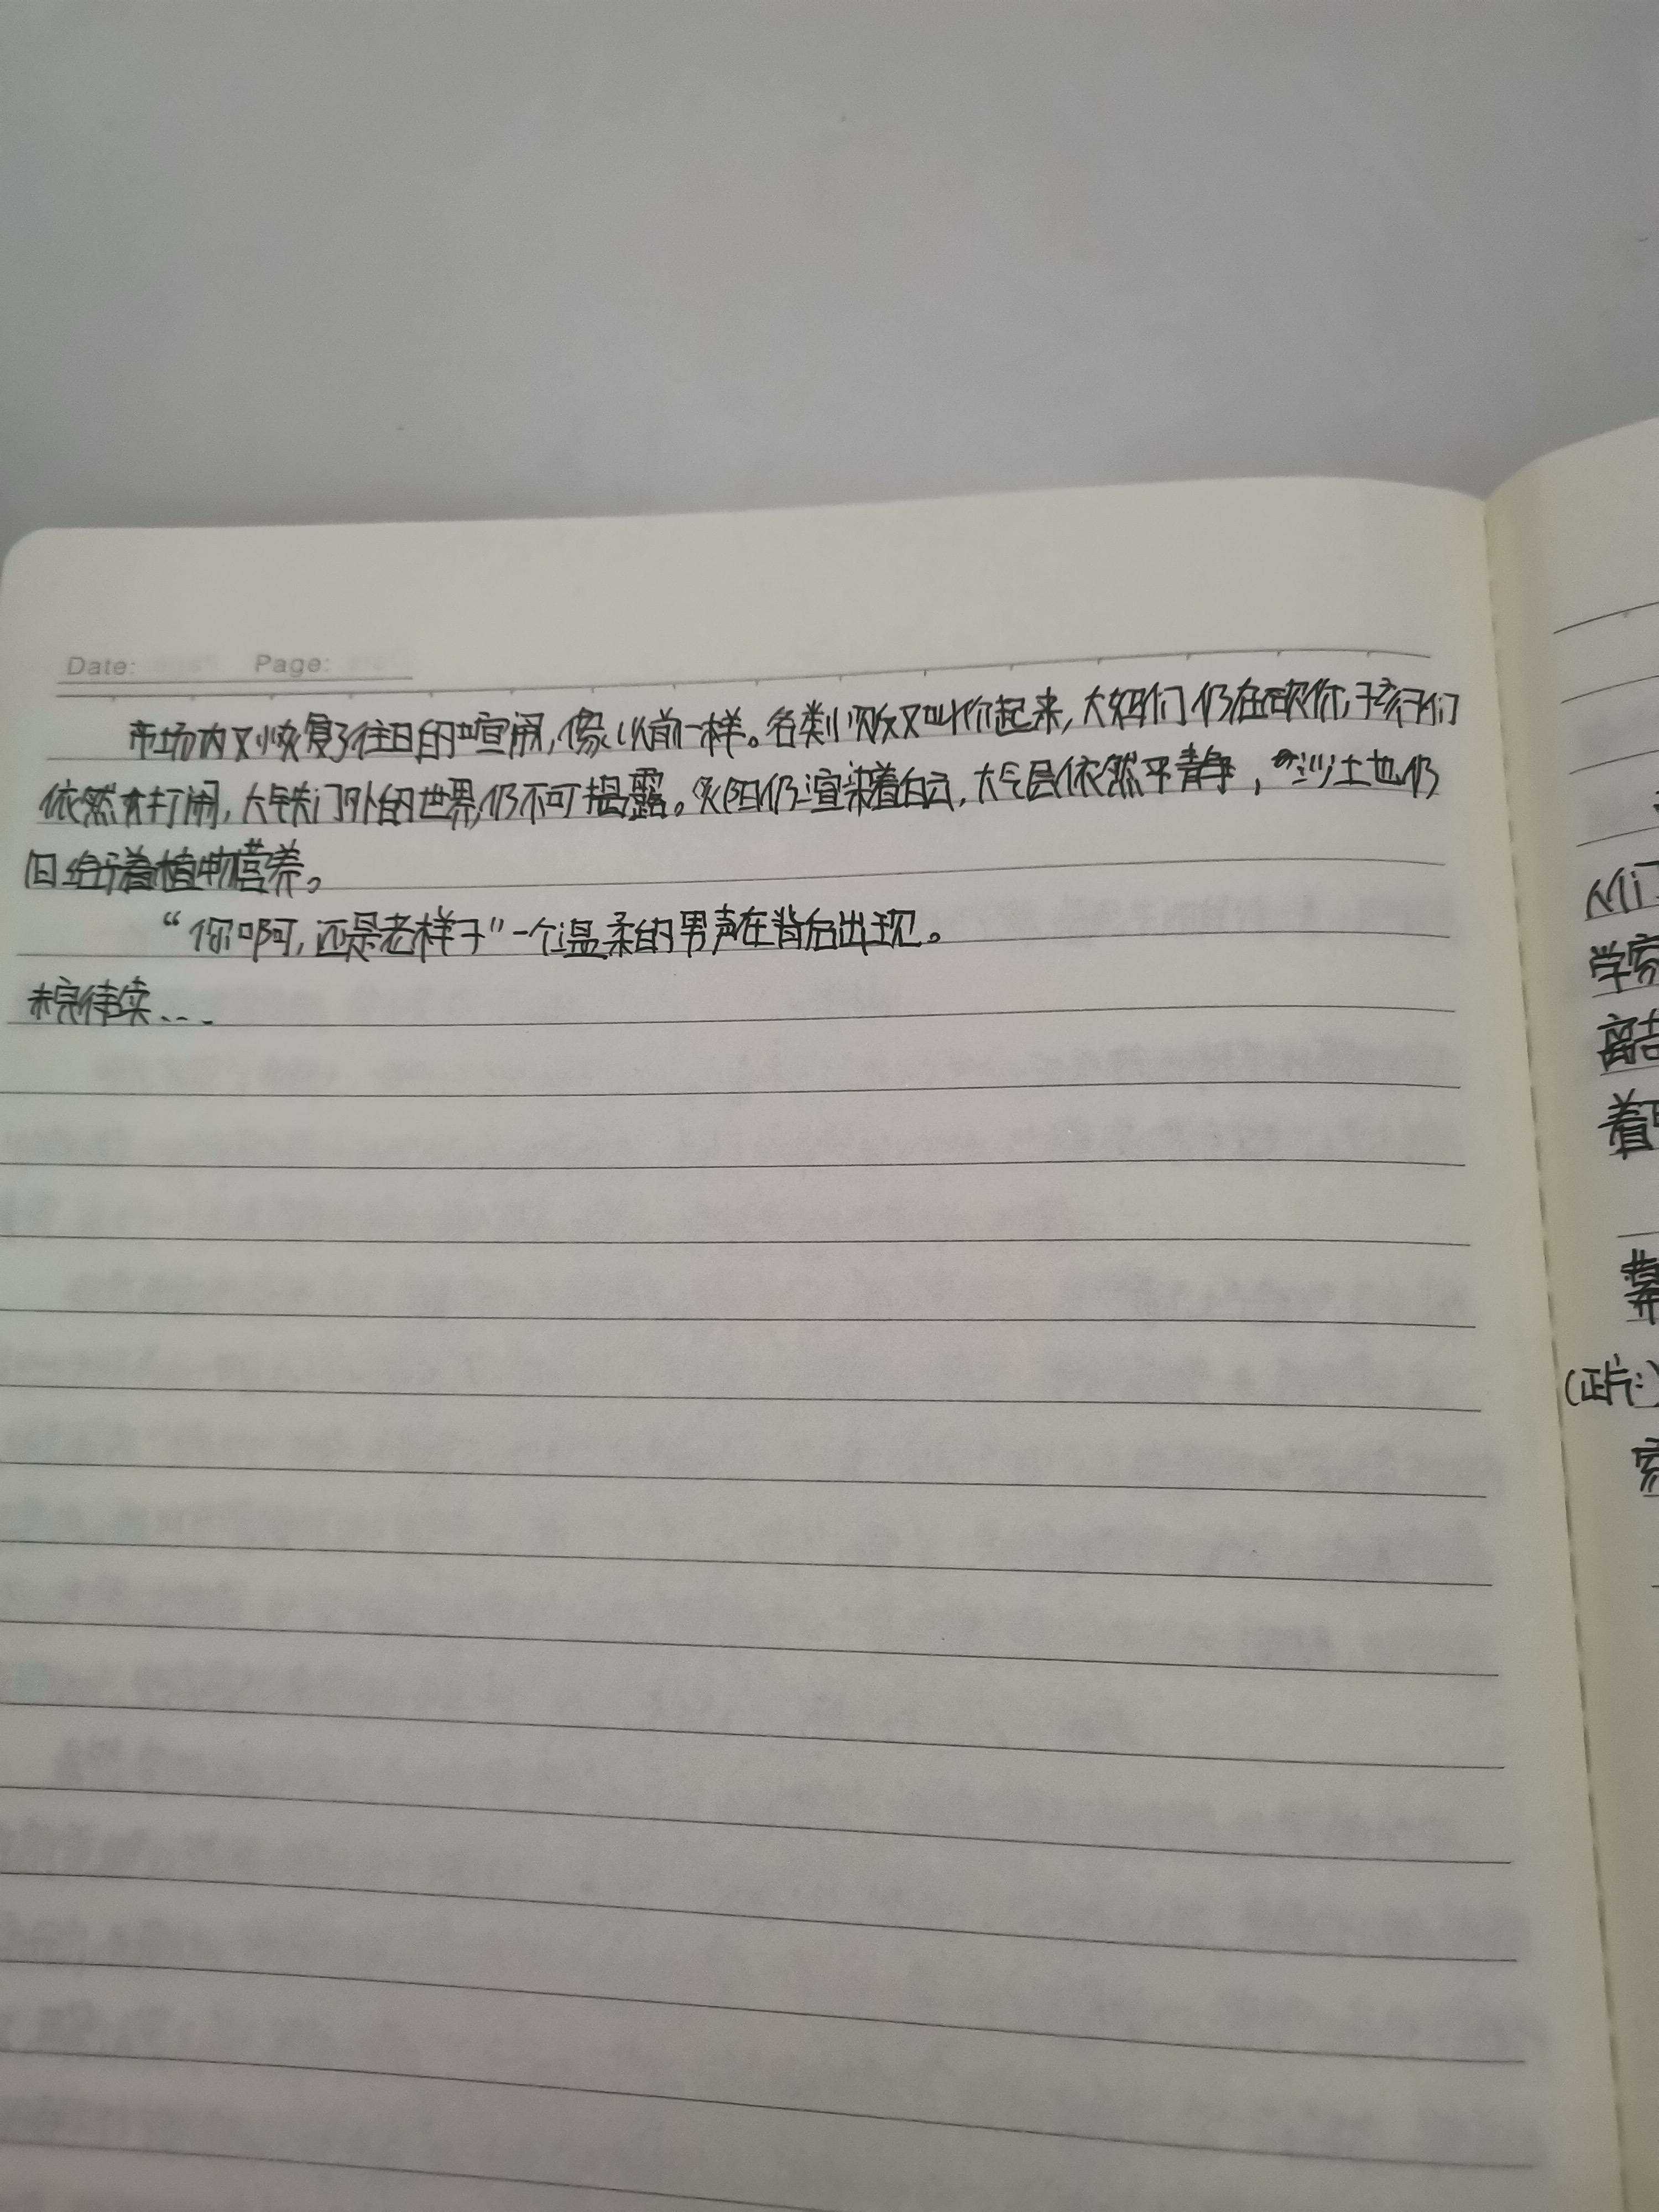 Date: Page:
市场内又恢复了往日的喧闹,像以前一样。各类小贩又叫价起来,大妈们仍在砍价,孩子们
依然在打闹,大铁门外的世界仍不可揭露。炙阳仍渲染着白云,大气层依然平静,沙土也仍
旧给予着植物营养。
“你啊,还是老样子”一个温柔的男声在背后出现。
未完待续...
学家
离古
着
(正片:)